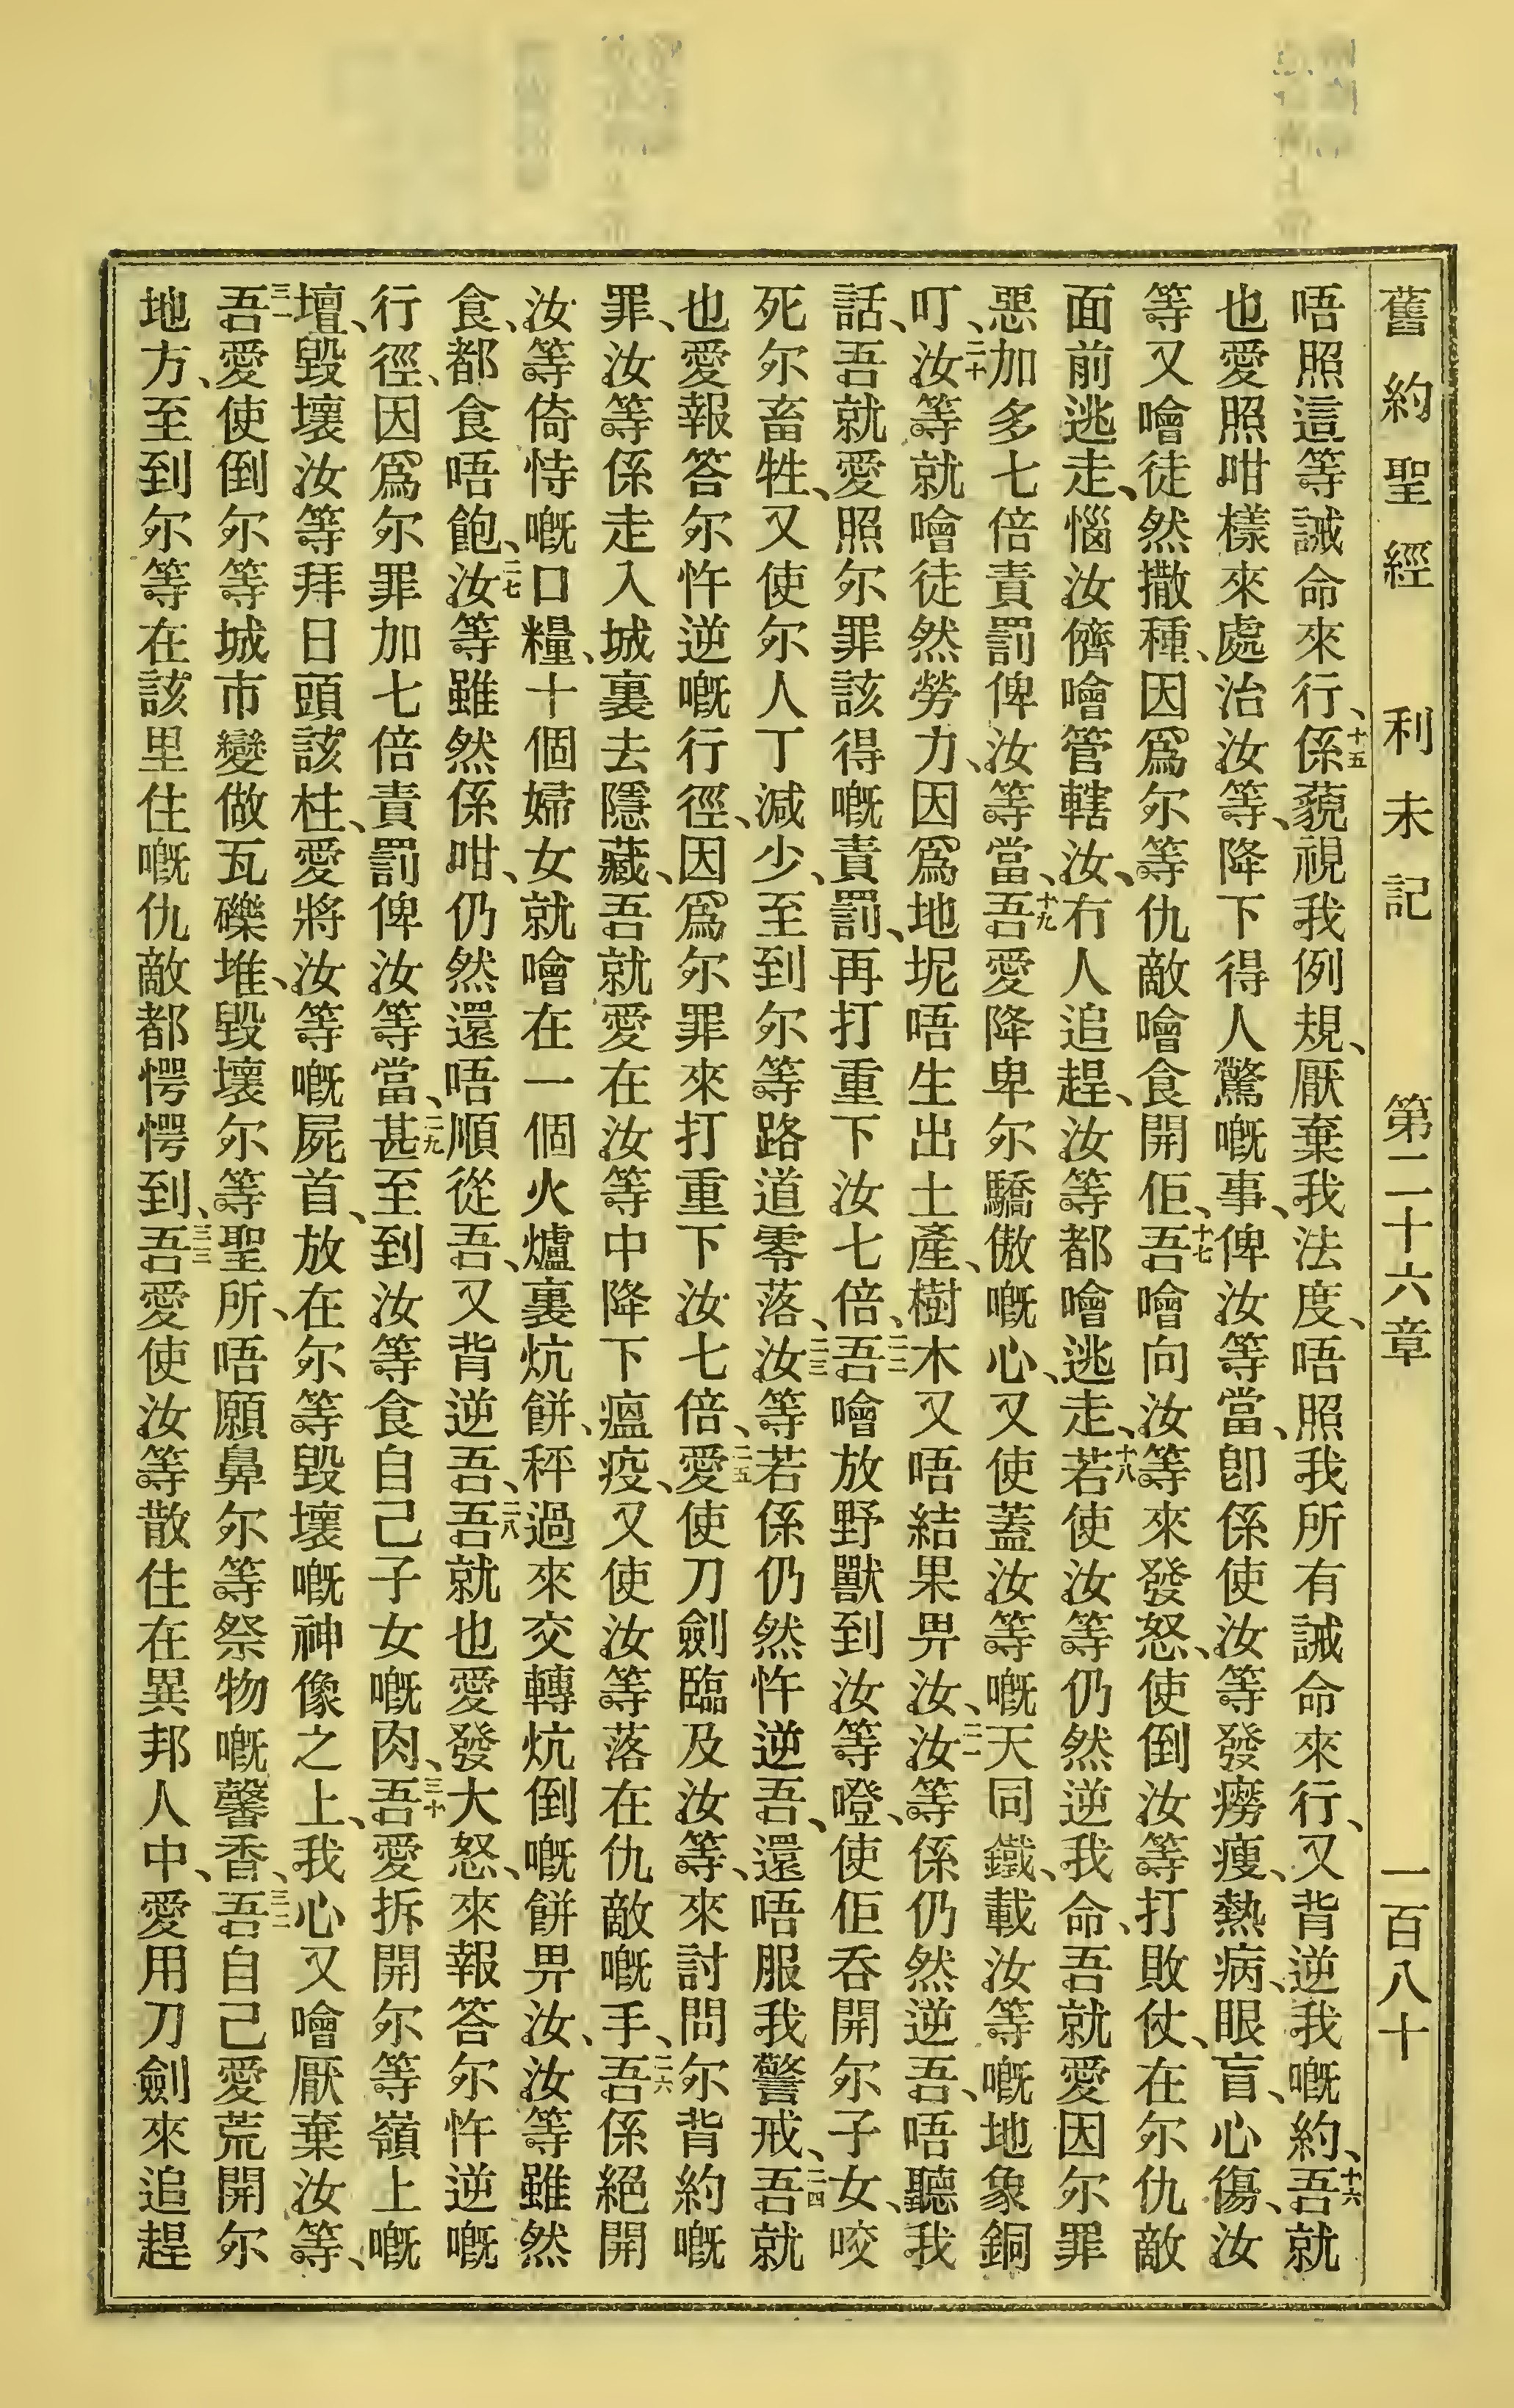 舊約聖經 利未記 第二十六章 一百八十
唔照這等誡命來行、十五係藐視我例規、厭棄我法度、唔照我所有誡命來行、又背逆我嘅約、十六吾就
也愛照咁樣來處治汝等、降下得人驚嘅事、俾汝等當、卽係使汝等發癆瘦、熱病、眼盲、心傷、汝
等又噲徒然撒種、因爲尔等仇敵噲食開佢、十七吾噲向汝等來發怒、使倒汝等打敗仗、在尔仇敵
面前逃走、惱汝儕噲管轄汝、冇人追趕、汝等都噲逃走、十八若使汝等仍然逆我命、吾就愛因尔罪
惡加多七倍責罰俾汝等當、十九吾愛降卑尔驕傲嘅心、又使蓋汝等嘅天同鐵、載汝等嘅地象銅
叮、二十汝等就噲徒然勞力、因爲地坭唔生出土產、樹木又唔結果畀汝、二一汝等係仍然逆吾、唔聽我
話、吾就愛照尔罪該得嘅責罰、再打重下汝七倍、二二吾噲放野獸到汝等墱、使佢呑開尔子女、咬
死尔畜牲、又使尔人丁減少、至到尔等路道零落、二三汝等若係仍然忤逆吾、還唔服我警戒、二四吾就
也愛報答尔忤逆嘅行徑、因爲尔罪來打重下汝七倍、二五愛使刀劍臨及汝等、來討問尔背約嘅
罪、汝等係走入城裏去隱藏、吾就愛在汝等中降下瘟疫、又使汝等落在仇敵嘅手、二六吾係絕開
汝等倚恃嘅口糧、十個婦女就噲在一個火爐裏炕餅、秤過來交轉炕倒嘅餅畀汝、汝等雖然
食、都食唔飽、二七汝等雖然係咁、仍然還唔順從吾、又背逆吾、二八吾就也愛發大怒、來報答尔忤逆嘅
行徑、因爲尔罪加七倍責罰俾汝等當、二九甚至到汝等食自己子女嘅肉、三十吾愛拆開尔等嶺上嘅
壇、毀壞汝等拜日頭該柱、愛將汝等嘅屍首、放在尔等毀壞嘅神像之上、我心又噲厭棄汝等、
三一吾愛使倒尔等城市變做瓦礫堆、毀壞尔等聖所、唔願鼻尔等祭物嘅馨香、三二吾自己愛荒開尔
地方、至到尔等在該里住嘅仇敵都愕愕到、三三吾愛使汝等散住在異邦人中、愛用刀劍來追趕